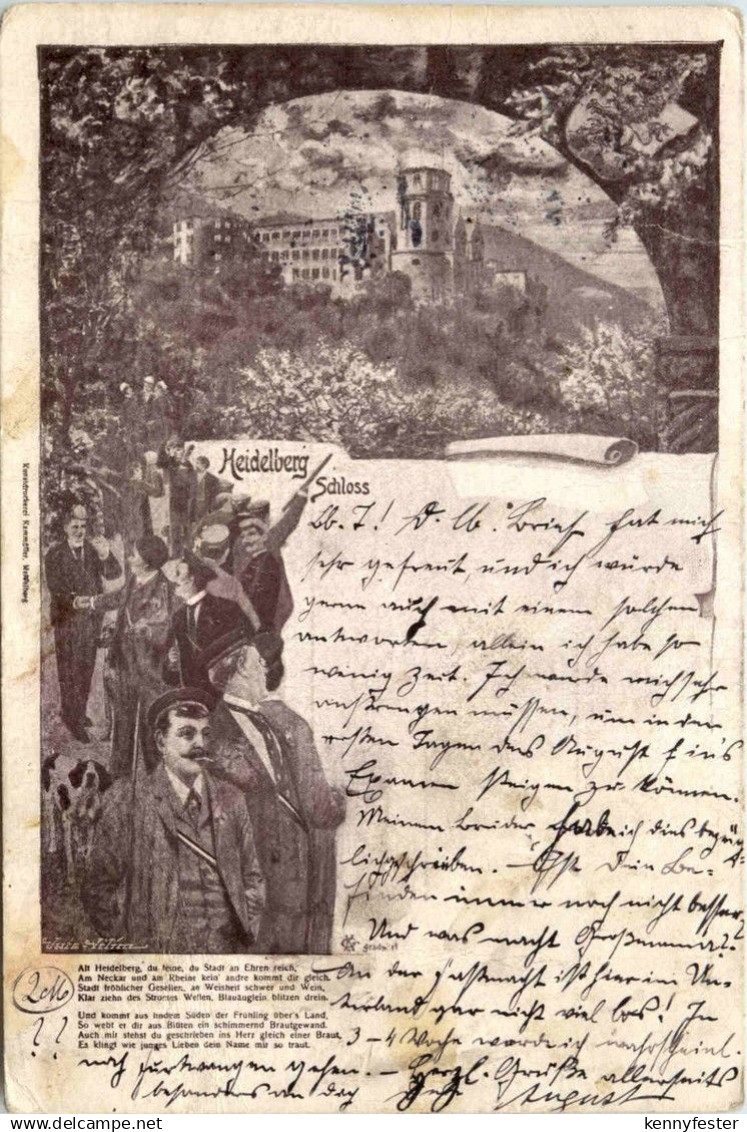 Heidelberg
Schloss
Lb. T.! D. lb. Brief hat mich
sehr gefreut, und ich würde
gerne auch mit einem solchen
antworten, allein ich habe so
wenig Zeit. Ich werde mich sehr
anstrengen müssen, um in den
ersten Tagen des August in's
Examen steigen zu können.
Meinem Bruder habe ich dies
lich geschrieben. – Ist Dein Be-
finden immer noch nicht besser?
Und was macht Großmama?
An der Fastnacht ist hier im Un-
terland gar nicht viel los! In
3–4 Woche werde ich wahrscheinl.
nach Furtwangen gehen. – Herzl. Grüße allerseits
besonders an Dich
August
Kunstdruckerei Kammüller, Heidelberg
Alt Heidelberg, du feine, du Stadt an Ehren reich,
Am Neckar und am Rheine kein' andre kommt dir gleich.
Stadt fröhlicher Gesellen, an Weisheit schwer und Wein,
Klar ziehn des Stromes Wellen, Blauäuglein blitzen drein.
Und kommt aus lindem Süden der Frühling über's Land,
So webt er dir aus Blüten ein schimmernd Brautgewand.
Auch mir stehst du geschrieben ins Herz gleich einer Braut,
Es klingt wie junges Lieben dein Name mir so traut.
2M
??
kennyfester
kennyfester